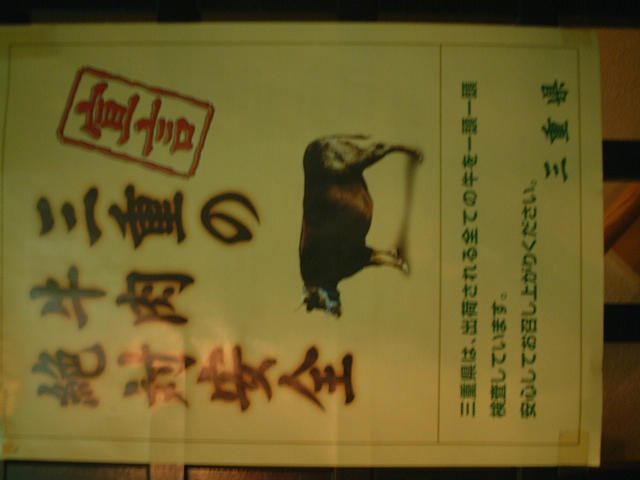 宣言
三重の
牛肉
絶対安全
三重県は、出荷される全ての牛を一頭一頭
検査しています。
安心してお召し上がりください。
三重県